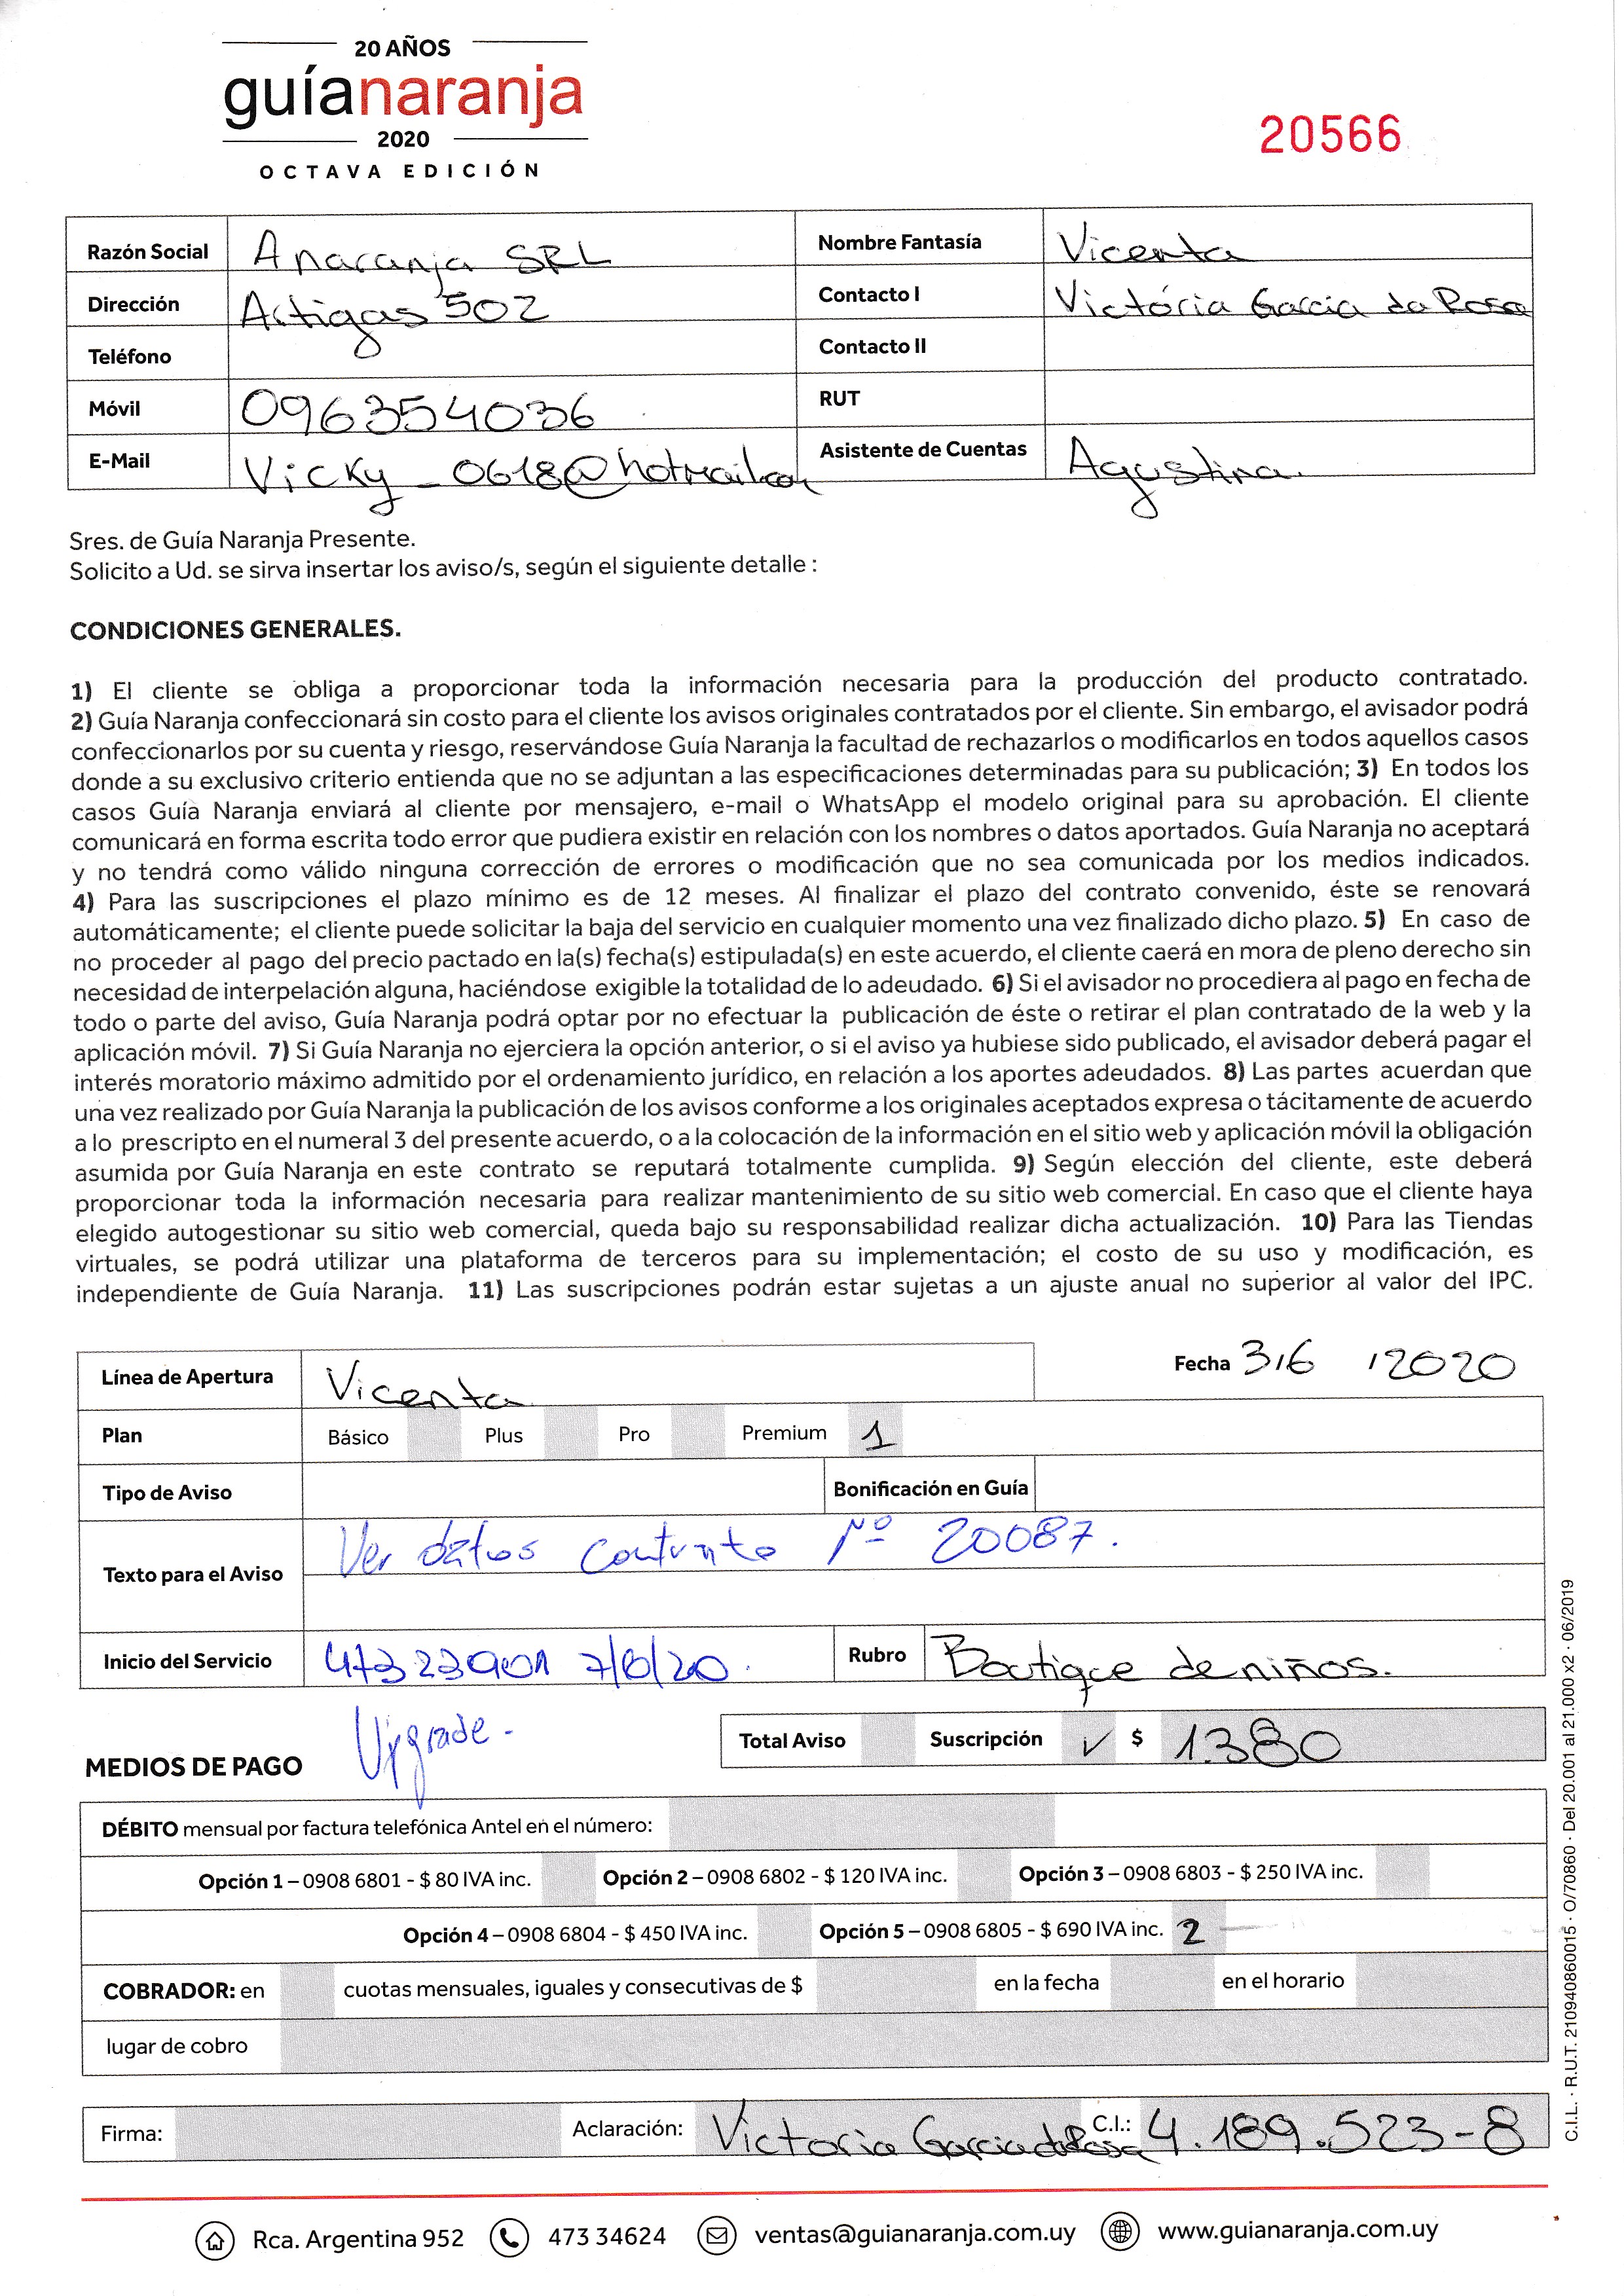 20 AÑOS
guíanaranja
2020
OCTAVA EDICIÓN
20566
Razón Social Anaranja SRL Nombre Fantasía Vicenta
Dirección Artigas 502 Contacto I Victória Garcia da Rosa
Teléfono Contacto II
Móvil 096354036 RUT
E-Mail Vicky_0618@hotmail.com Asistente de Cuentas Agustina.
Sres. de Guía Naranja Presente.
Solicito a Ud. se sirva insertar los aviso/s, según el siguiente detalle :
CONDICIONES GENERALES.
1) El cliente se obliga a proporcionar toda la información necesaria para la producción del producto contratado.
2) Guía Naranja confeccionará sin costo para el cliente los avisos originales contratados por el cliente. Sin embargo, el avisador podrá
confeccionarlos por su cuenta y riesgo, reservándose Guía Naranja la facultad de rechazarlos o modificarlos en todos aquellos casos
donde a su exclusivo criterio entienda que no se adjuntan a las especificaciones determinadas para su publicación; 3) En todos los
casos Guía Naranja enviará al cliente por mensajero, e-mail o WhatsApp el modelo original para su aprobación. El cliente
comunicará en forma escrita todo error que pudiera existir en relación con los nombres o datos aportados. Guía Naranja no aceptará
y no tendrá como válido ninguna corrección de errores o modificación que no sea comunicada por los medios indicados.
4) Para las suscripciones el plazo mínimo es de 12 meses. Al finalizar el plazo del contrato convenido, éste se renovará
automáticamente; el cliente puede solicitar la baja del servicio en cualquier momento una vez finalizado dicho plazo. 5) En caso de
no proceder al pago del precio pactado en la(s) fecha(s) estipulada(s) en este acuerdo, el cliente caerá en mora de pleno derecho sin
necesidad de interpelación alguna, haciéndose exigible la totalidad de lo adeudado. 6) Si el avisador no procediera al pago en fecha de
todo o parte del aviso, Guía Naranja podrá optar por no efectuar la publicación de éste o retirar el plan contratado de la web y la
aplicación móvil. 7) Si Guía Naranja no ejerciera la opción anterior, o si el aviso ya hubiese sido publicado, el avisador deberá pagar el
interés moratorio máximo admitido por el ordenamiento jurídico, en relación a los aportes adeudados. 8) Las partes acuerdan que
una vez realizado por Guía Naranja la publicación de los avisos conforme a los originales aceptados expresa o tácitamente de acuerdo
a lo prescripto en el numeral 3 del presente acuerdo, o a la colocación de la información en el sitio web y aplicación móvil la obligación
asumida por Guía Naranja en este contrato se reputará totalmente cumplida. 9) Según elección del cliente, este deberá
proporcionar toda la información necesaria para realizar mantenimiento de su sitio web comercial. En caso que el cliente haya
elegido autogestionar su sitio web comercial, queda bajo su responsabilidad realizar dicha actualización. 10) Para las Tiendas
virtuales, se podrá utilizar una plataforma de terceros para su implementación; el costo de su uso y modificación, es
independiente de Guía Naranja. 11) Las suscripciones podrán estar sujetas a un ajuste anual no superior al valor del IPC.
Línea de Apertura Vicenta Fecha 3/6/2020
Plan Básico Plus Pro Premium 1
Tipo de Aviso Bonificación en Guía
Texto para el Aviso Ver datos contrato Nº 20087.
Inicio del Servicio 47323901 7/8/20. Rubro Boutique de niños.
Upgrade-
MEDIOS DE PAGO Total Aviso Suscripción ✓ $ 1.380
DÉBITO mensual por factura telefónica Antel en el número:
Opción 1 – 0908 6801 - $ 80 IVA inc. Opción 2 – 0908 6802 - $ 120 IVA inc. Opción 3 – 0908 6803 - $ 250 IVA inc.
Opción 4 – 0908 6804 - $ 450 IVA inc. Opción 5 – 0908 6805 - $ 690 IVA inc. 2
COBRADOR: en cuotas mensuales, iguales y consecutivas de $ en la fecha en el horario
lugar de cobro
Firma: Aclaración: Victoria Garcia da Rosa C.I.: 4.189.523-8
C.I.L. · R.U.T. 210940860015 · O/70860 · Del 20.001 al 21.000 x2 · 06/2019
Rca. Argentina 952 473 34624 ventas@guianaranja.com.uy www.guianaranja.com.uy